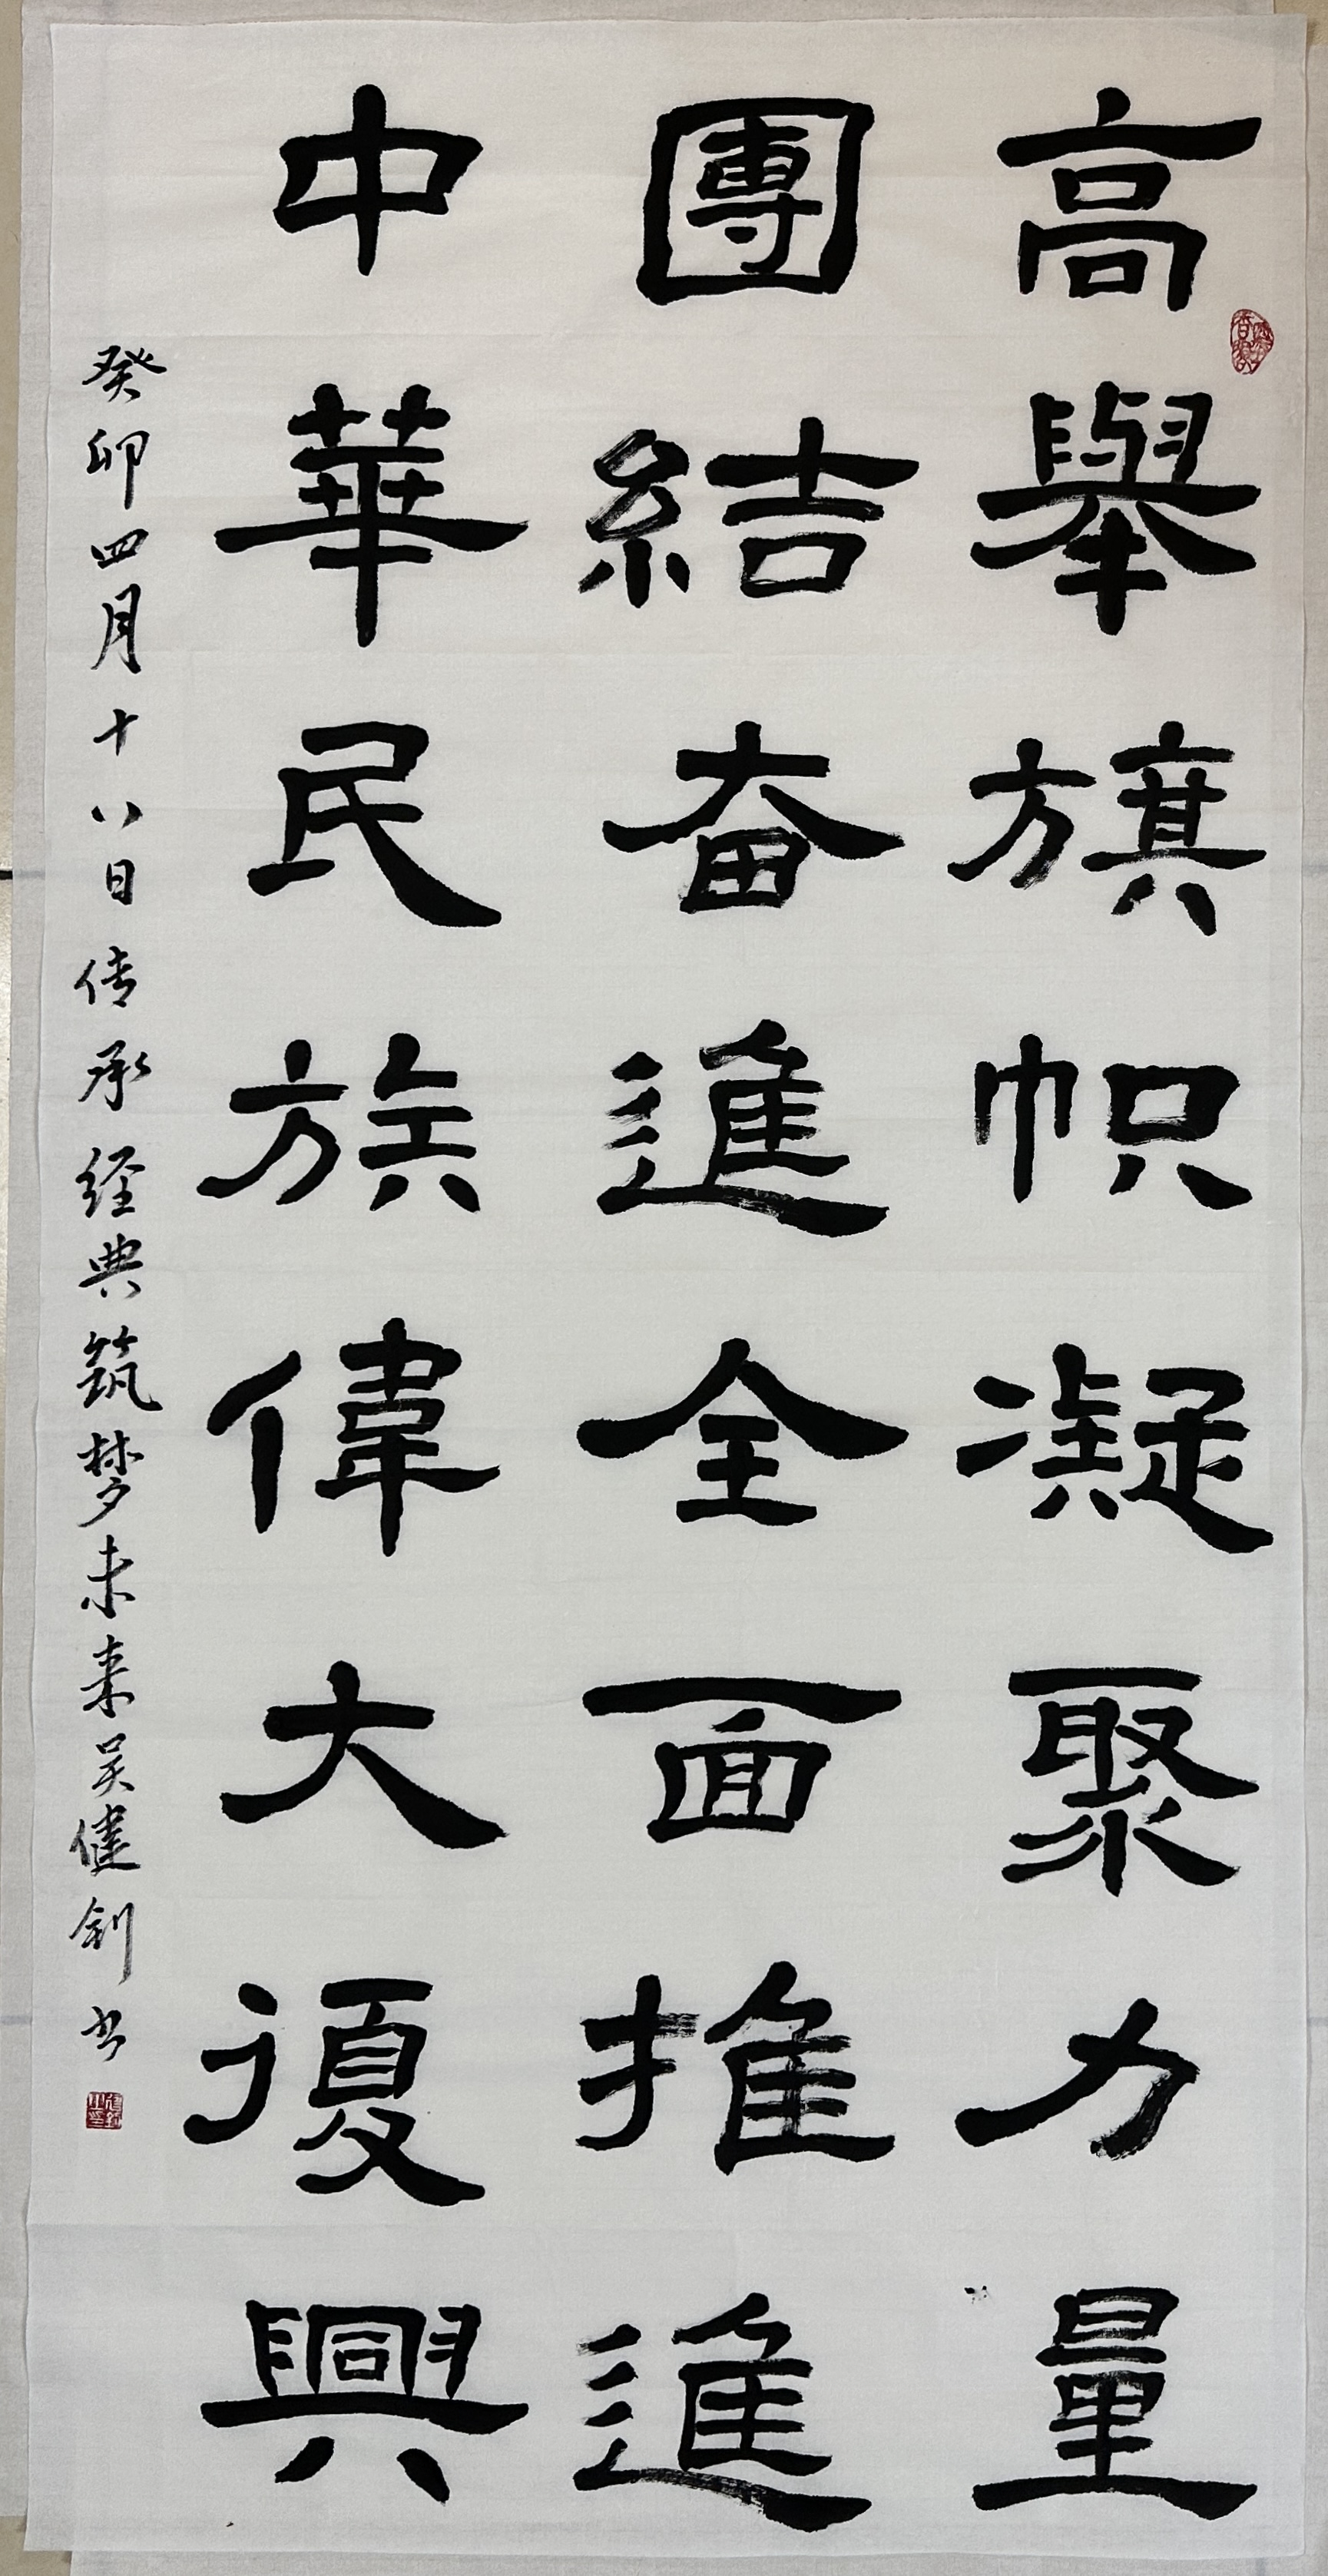 高舉旗帜凝聚力量
團結奋進全面推進
中華民族偉大復興
癸卯四月十八日传承经典筑梦未来吴健钊书